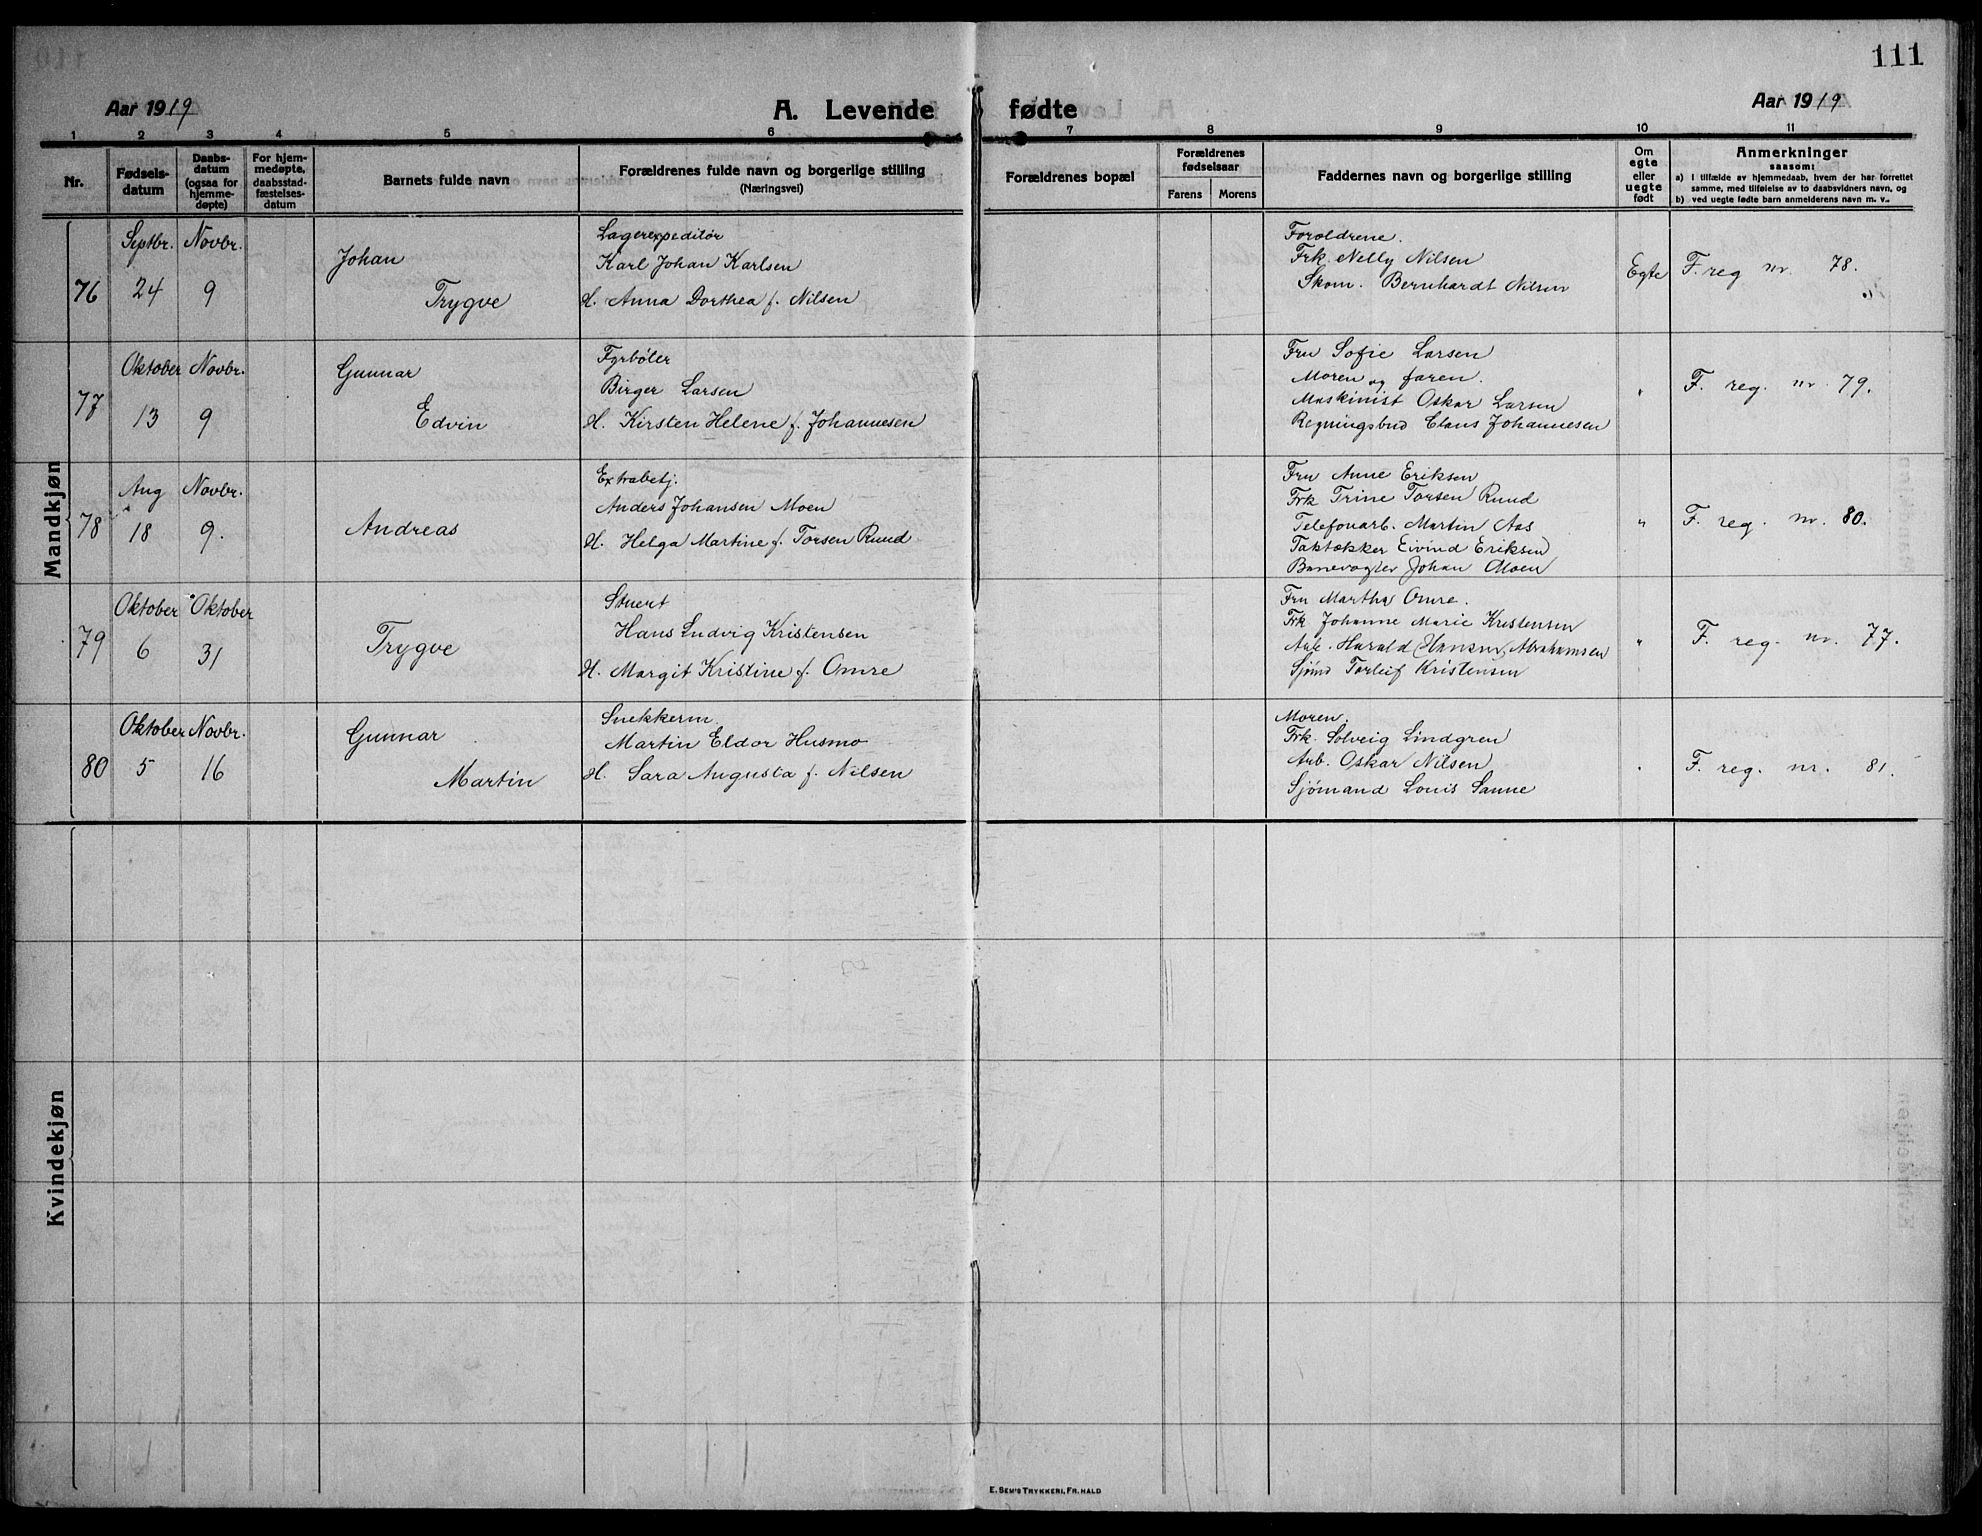 111
Aar 1919
A. Levende fødte
Aar 1919
1 2 3 4 5 6 7 8 9 10 11
Nr.
Fødsels-
datum
Daabs-
datum
(ogsaa for
hjemme-
døpte)
For hjem-
medøpte,
daabsstad-
fæstelses-
datum
Barnets fulde navn
Forældrenes fulde navn og borgerlige stilling
(Næringsvei)
Forældrenes bopæl
Forældrenes
fødselsaar
Farens
Morens
Faddernes navn og borgerlige stilling
Om
egte
eller
uegte
født
Anmerkninger
saasom:
a) I tilfælde av hjemmedaab, hvem der har forrettet
samme, med tilføielse av to daabsvidners navn, og
b) ved uegte fødte barn anmelderens navn m. v.
Mandkjøn
76
Septbr.
24
Novbr.
9
Johan
Trygve
Lagerexpeditør
Karl Johan Karlsen
H. Anna Dorthea f. Nilsen
Foreldrene.
Frk. Nelly Nilsen
Skom. Bernhardt Nilsen
Egte
F. reg nr. 78.
77
Oktober
13
Novbr.
9
Gunnar
Edvin
Fyrbøter
Birger Larsen
H. Kirsten Helene f. Johannesen
Fru Sofie Larsen
Moren og faren.
Maskinist Oskar Larsen
Regningsbud Claus Johannesen
"
F. reg. nr. 79.
78
Aug
18
Novbr.
9.
Andreas
Extrabetj.
Anders Johansen Moen
H. Helga Martine f. Torsen Ruud
Fru Anne Eriksen
Frk Trine Torsen Ruud
Telefonarb. Martin Aas
Taktækker Eivind Eriksen
Banevogter Johan Moen
"
F. reg. nr. 80.
79
Oktober
6
Oktober
31
Trygve
Stuert
Hans Ludvig Kristensen
H. Margit Kristine f. Omre
Fru Martha Omre.
Frk Johanne Marie Kristensen
Arb. Harald Hansen Abrahamsen
Sjømd Torleif Kristensen
"
F. reg. nr. 77.
80
Oktober
5
Novbr.
16
Gunnar
Martin
Snekkerm.
Martin Eldor Husmo
H. Sara Augusta f. Nilsen
Moren.
Frk. Solveig Lindgren
Arb. Oskar Nilsen
Sjømand Louis Sanne
"
F. reg. nr. 81.
Kvindekjøn
E. Sem's Trykkeri, Fr.hald